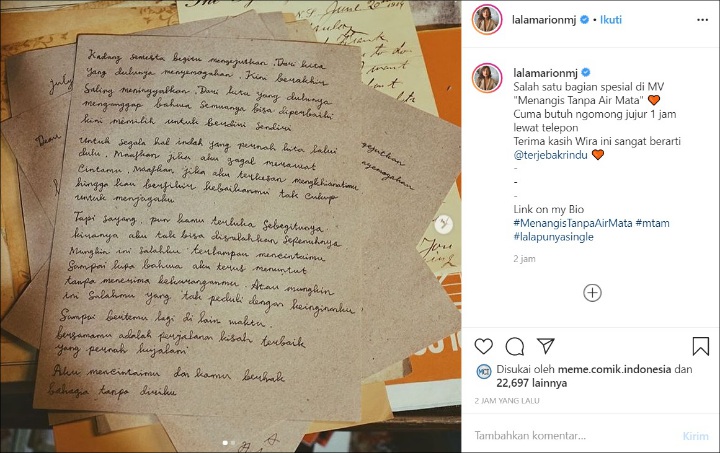 Kadang semesta begitu mengejutkan. Dari kita
yang dulunya menyenangkan, Kini berakhir
Saling meninggalkan. Dari kita yang dulunya
menganggap bahwa semuanya bisa diperbaiki
kini memilih untuk berdiri sendiri
untuk segala hal indah yang pernah kita lalui
dulu, Maafkan jika aku gagal merawat
Cintamu, Maafkan jika aku terkesan mengkhianatimu
hingga kau berfikir kebaikanmu tak cukup
untuk menjagaku
Tapi sayang, pun kamu terluka sebegitunya
kiranya aku tak bisa disalahkan sepenuhnya
Mungkin ini salahku terlampau mencintaimu
Sampai lupa bahwa aku terus menuntut
tanpa menerima kekuranganmu. Atau mungkin
ini salahmu yang tak peduli dengan keinginanku
Sampai bertemu lagi di lain waktu,
bersamamu adalah perjalanan kisah terbaik
yang pernah kujalani
Aku mencintaimu dan kamu berhak
bahagia tanpa diriku
july
Dear
Frank
to do
want
lalamarionmj • Ikuti
lalamarionmj
Salah satu bagian spesial di MV
"Menangis Tanpa Air Mata"
Cuma butuh ngomong jujur 1 jam
lewat telepon
Terima kasih Wira ini sangat berarti
@terjebakrindu
-
-
-
Link on my Bio
#MenangisTanpaAirMata #mtam
#lalapunyasingle
2 jam
Disukai oleh meme.comik.indonesia dan
22,697 lainnya
2 JAM YANG LALU
Tambahkan komentar...
Kirim